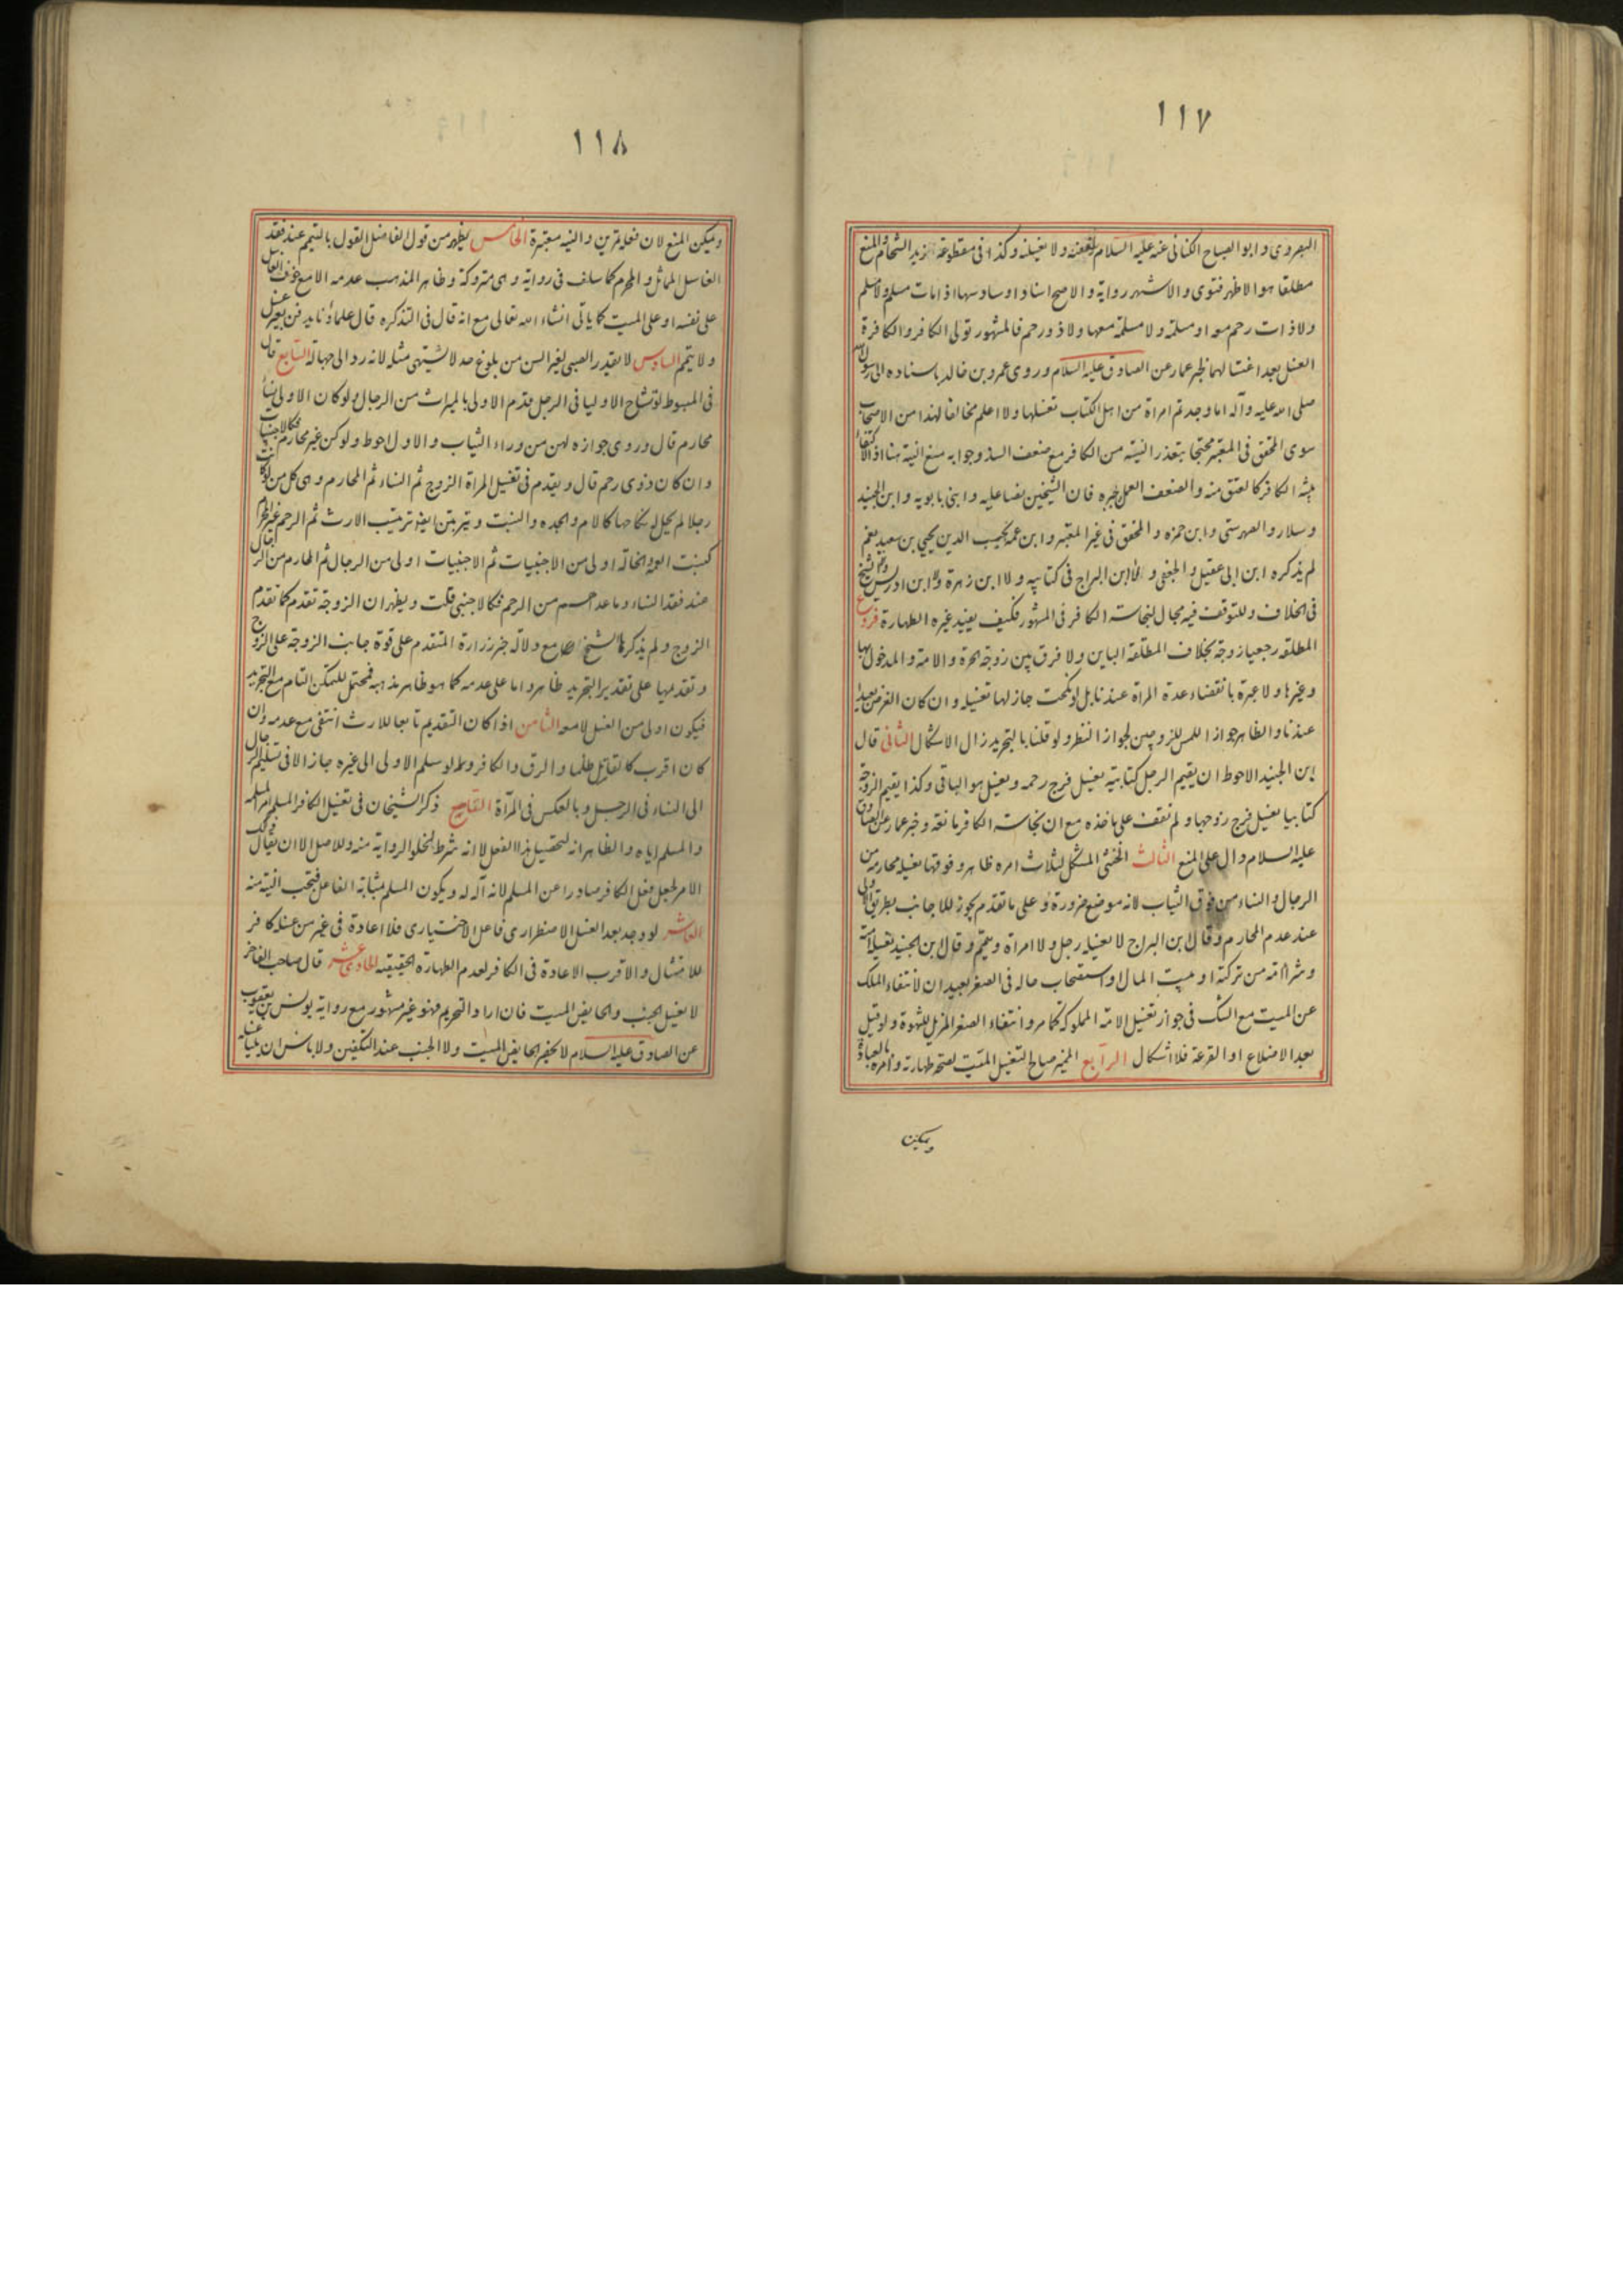 ١١٧
البصروى وابو الصباح الكنانى عنه عليه السلام تدفنه ولا تغسلنه وكذا فى مقطوعة زيد الشحام والمنع
مطلقا هو الاظهر فتوى والاشهر رواية والاصح اسنادا وسادسها اذا مات مسلم ولا مسلم
ولا ذات رحم معه او مسلمة ولا مسلمة معها ولا ذو رحم فالمشهور تولى الكافر والكافرة
الغسل بعد اغتسالهما لخبر عمار عن الصادق عليه السلام وروى عمرو بن خالد باسناده الى رسول الله
صلى الله عليه وآله اما وجدتم امراة من اهل الكتاب تغسلها ولا اعلم مخالفا لهذا من الاصحاب
سوى المحقق فى المعتبر محتجا بتعذر النية من الكافر مع ضعف السند وجوابه منع النية هنا او الاكتفاء
بنية الكافر كالعتق منه والضعف العمل يجبره فان الشيخين نصا عليه وابنى بابويه وابن الجنيد
وسلار والصهرشتى وابن حمزه والمحقق فى غير المعتبر وابن عمه نجيب الدين يحيى بن سعيد نعم
لم يذكره ابن ابى عقيل والجعفى ولا ابن البراج فى كتابيه ولا ابن زهرة ولا ابن ادريس ولا الشيخ
فى الخلاف وللتوقف فيه مجال لنجاسة الكافر فى المشهور فكيف يفيد غيره الطهارة فروع
المطلقه رجعيا زوجة بخلاف المطلقة الباين ولا فرق بين زوجة الحرة والامة والمدخول بها
وغيرها ولا عبرة بانقضاء عدة المراة عندنا بل لو نكحت جاز لها تغسيله وان كان الفرض بعيدا
عندنا والظاهر جواز اللمس للزوجين لجواز النظر ولو قلنا بالتجريد زال الاشكال الثانى قال
ابن الجنيد الاحوط ان يقيم الرجل كتابية يغسل فرج رحمه ويغسل هو الباقى وكذا يقيم الزوجة
كتابيا يغسل فرج زوجها ولم نقف على ماخذه مع ان نجاسة الكافر مانعة وخبر عمار عن الصادق
عليه السلام دال على المنع الثالث الخنثى المشكل لثلاث امره ظاهر وفوقها يغسله محارمه من
الرجال والنساء من فوق الثياب لانه موضع ضرورة وعلى ما تقدم يجوز للاجانب بطريق الاولى
عند عدم المحارم وقال ابن البراج لا يغسله رجل ولا امراة وييمم وقال ابن الجنيد تغسله امته
وشراء امته من تركته او بيت المال او استصحاب حاله فى الصغر بعيدان لانتفاء الملك
عن الميت مع الشك فى جواز تغسيل الامة المملوكة كما مر وانتفاء الصغر المزيل للشهوة ولو قيل
بعد الاضلاع او القرعة فلا اشكال الرابع المميز صالح لتغسيل الميت لصحة طهارته وامره بالعبادة
ويمكن
١١٨
ويمكن المنع لان فعله تمرين والنية معتبرة الخامس يظهر من قول الفاضل القول بالتيمم عند فقد
الغاسل المماثل والمحرم كما سلف فى رواية وهى متروكة وظاهر المذهب عدمه الا مع خوف الغاسل
على نفسه او على الميت كما ياتى انشاء الله تعالى مع انه قال فى التذكره قال علماؤنا يدفن بغير غسل
ولا يتيمم السادس لا يقدر الصبى لغير السن من بلوغ حد لا يشتهى مثله لانه رد الى جهالة السابع قال
فى المبسوط لو تشاح الاوليا فى الرجل قدم الاولى بالميراث من الرجال ولو كان الاولى نساء
محارم قال وروى جوازه لهن من وراء الثياب والاول احوط ولو كن غير محارم فكالاجنبيات
وان كان ذوى رحم قال ويقدم فى تغسيل المراة الزوج ثم النساء ثم المحارم وهى كل من لو كانت
رجلا لم يحل له نكاحها كالام والجده والبنت ويترتبن ايضا ترتيب الارث ثم الرحم غير المحرم
كبنت العمة والخالة اولى من الاجنبيات ثم الاجنبيات اولى من الرجال ثم المحارم من الرجال
عند فقد النساء وما عداهم من الرحم فكالاجنبى قلت ويظهر ان الزوجة تقدم كما تقدم
الزوج ولم يذكرها الشيخ مع دلالة خبر زرارة المتقدم على قوة جانب الزوجة على الزوج
وتقديمها على تقدير التجريد ظاهر واما على عدمه كما هو ظاهر مذهبه فمحتمل للتمكن التام مع التجريد
فيكون اولى من الغسل لا معه الثامن اذا كان التقديم تابعا للارث انتفى مع عدمه وان
كان اقرب كالقاتل ظلما والرق والكافر ولو سلم الاولى الى غيره جاز الا فى تسليم الرجال
الى النساء فى الرجل وبالعكس فى المرآة التاسع ذكر الشيخان فى تغسيل الكافر المسلم امر المسلمه
والمسلم اياه والظاهر انه لتحصيل هذا الفعل لا انه شرط لخلو الرواية منه وللاصل الا ان يقال ذلك
الامر لجعل فعل الكافر صادرا عن المسلم لانه آلة له ويكون المسلم بمثابة الفاعل فيجب النية منه
العاشر لو وجد بعد الغسل الاضطرارى فاعل الاختيارى فلا اعادة فى غير من غسله كافر
للامتثال والاقرب الاعادة فى الكافر لعدم الطهارة الحقيقية الحادى عشر قال صاحب الفاخر
لا يغسل الجنب والحايض الميت فان اراد التحريم فهو غير مشهور مع رواية يونس بن يعقوب
عن الصادق عليه السلام لا يحضر الحايض الميت ولا الجنب عند التلقين ولا باس ان يليا غسله